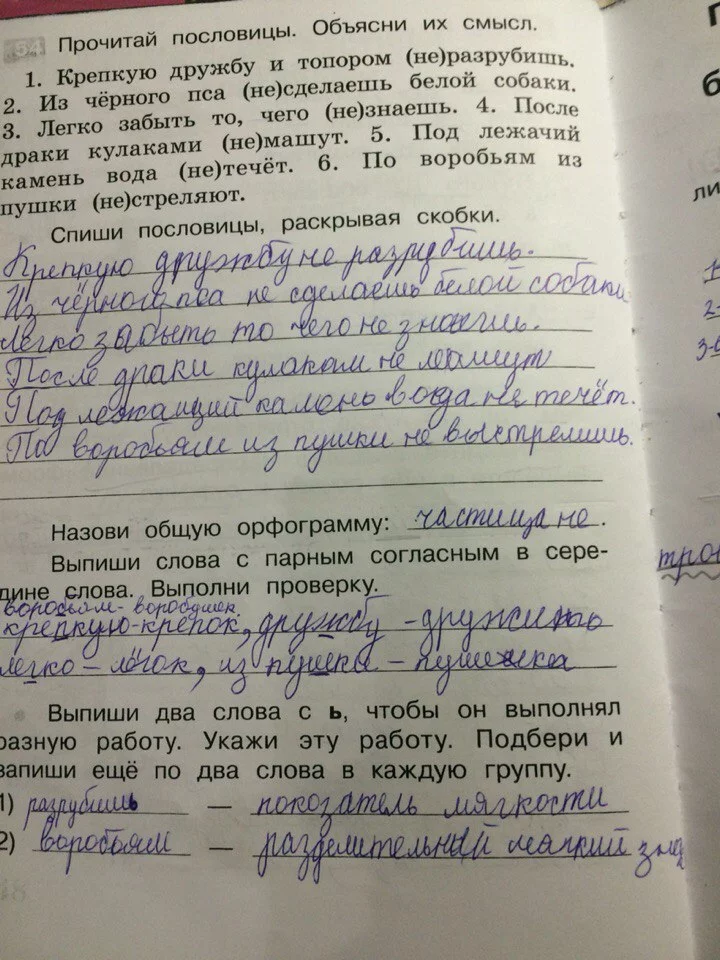 54 Прочитай пословицы. Объясни их смысл.
1. Крепкую дружбу и топором (не)разрубишь.
2. Из чёрного пса (не)сделаешь белой собаки.
3. Легко забыть то, чего (не)знаешь. 4. После
драки кулаками (не)машут. 5. Под лежачий
камень вода (не)течёт. 6. По воробьям из
пушки (не)стреляют.
Спиши пословицы, раскрывая скобки.
Крепкую дружбу не разрубишь.
Из чёрного пса не сделаешь белой собаки
Легко забыть то чего не знаешь.
После драки кулакам не машут
Под лежащий камень вода не течёт.
По воробьям из пушки не выстрелишь.
Назови общую орфограмму: частица не.
Выпиши слова с парным согласным в сере-
дине слова. Выполни проверку.
воробьям - воробушек
крепкую-крепок, дружбу -
легко - лёгок, из пушки -
Выпиши два слова с ь, чтобы он выполнял
разную работу. Укажи эту работу. Подбери и
запиши ещё по два слова в каждую группу.
1) разрубишь — показатель мягкости
2) воробьям — разделительный мягкий зна
П
б
ли
1-
2-
3-
тро